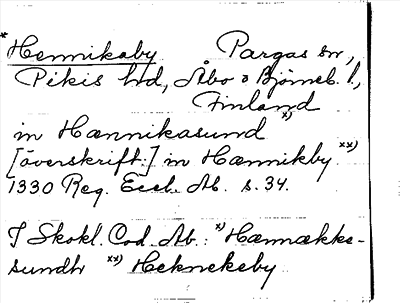 *Hennikaby Pargas sn,
Pikis hd, Åbo o Bjömeb. l.,
Finland
in Hænnikasund x)
[överskrift:] in Hænnikby xx)
1330 Reg. Eccl. Ab. s. 34.
I Skokl. Cod. Ab.: x) Hænnække-
sundh xx) Heknekeby